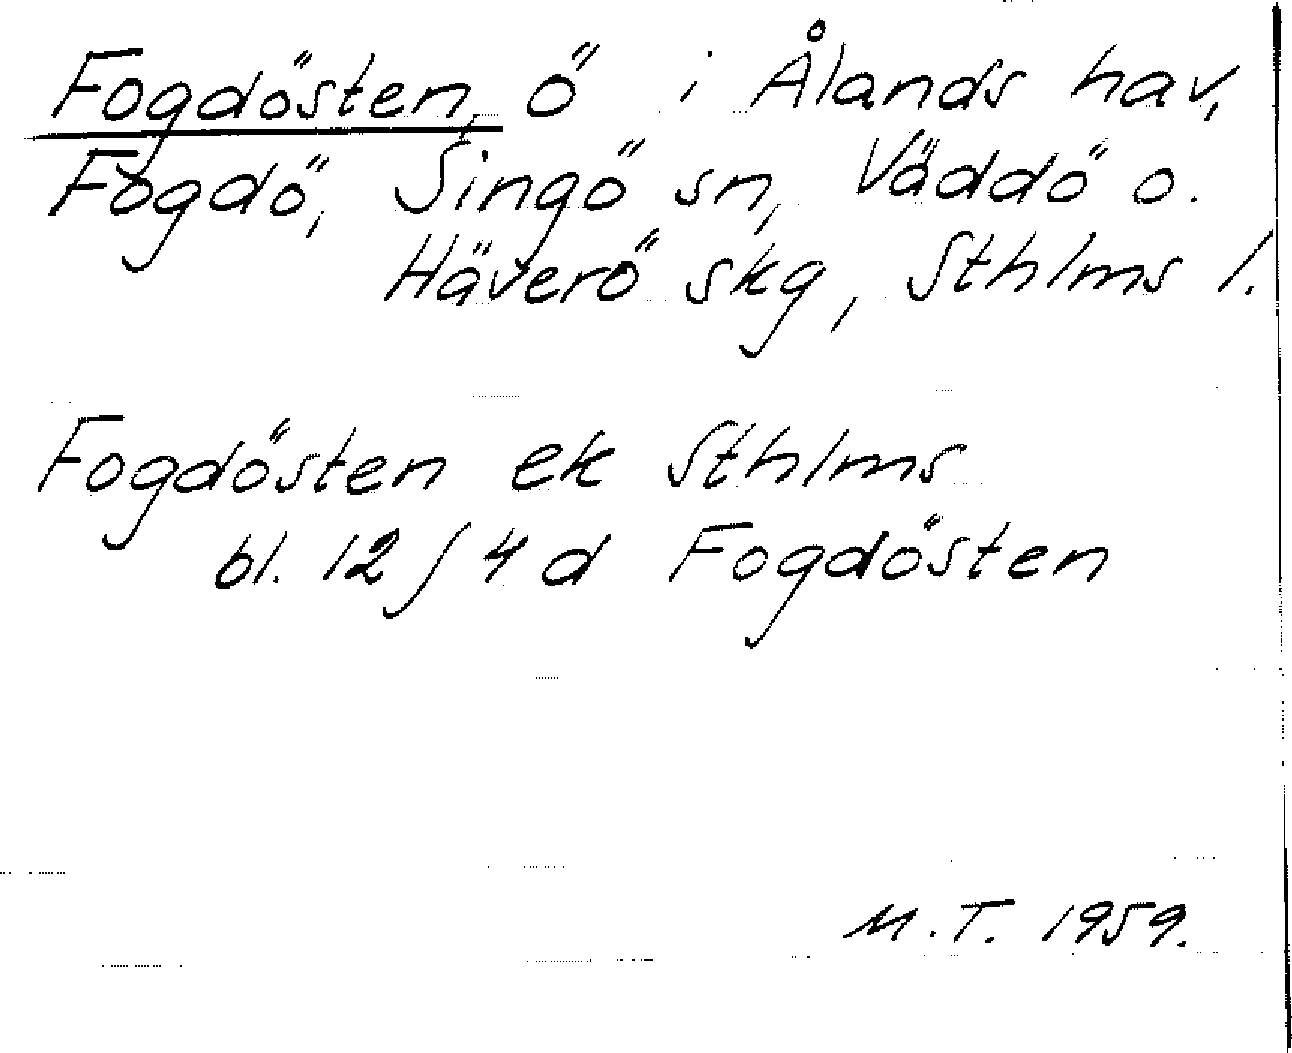 Fogdösten, ö i Ålands hav,
Fogdö, Singö sn, Väddö o.
Häverö skg, Sthlms l.
Fogdösten ek Sthlms
bl. 12/4d Fogdösten
M.T. 1959.